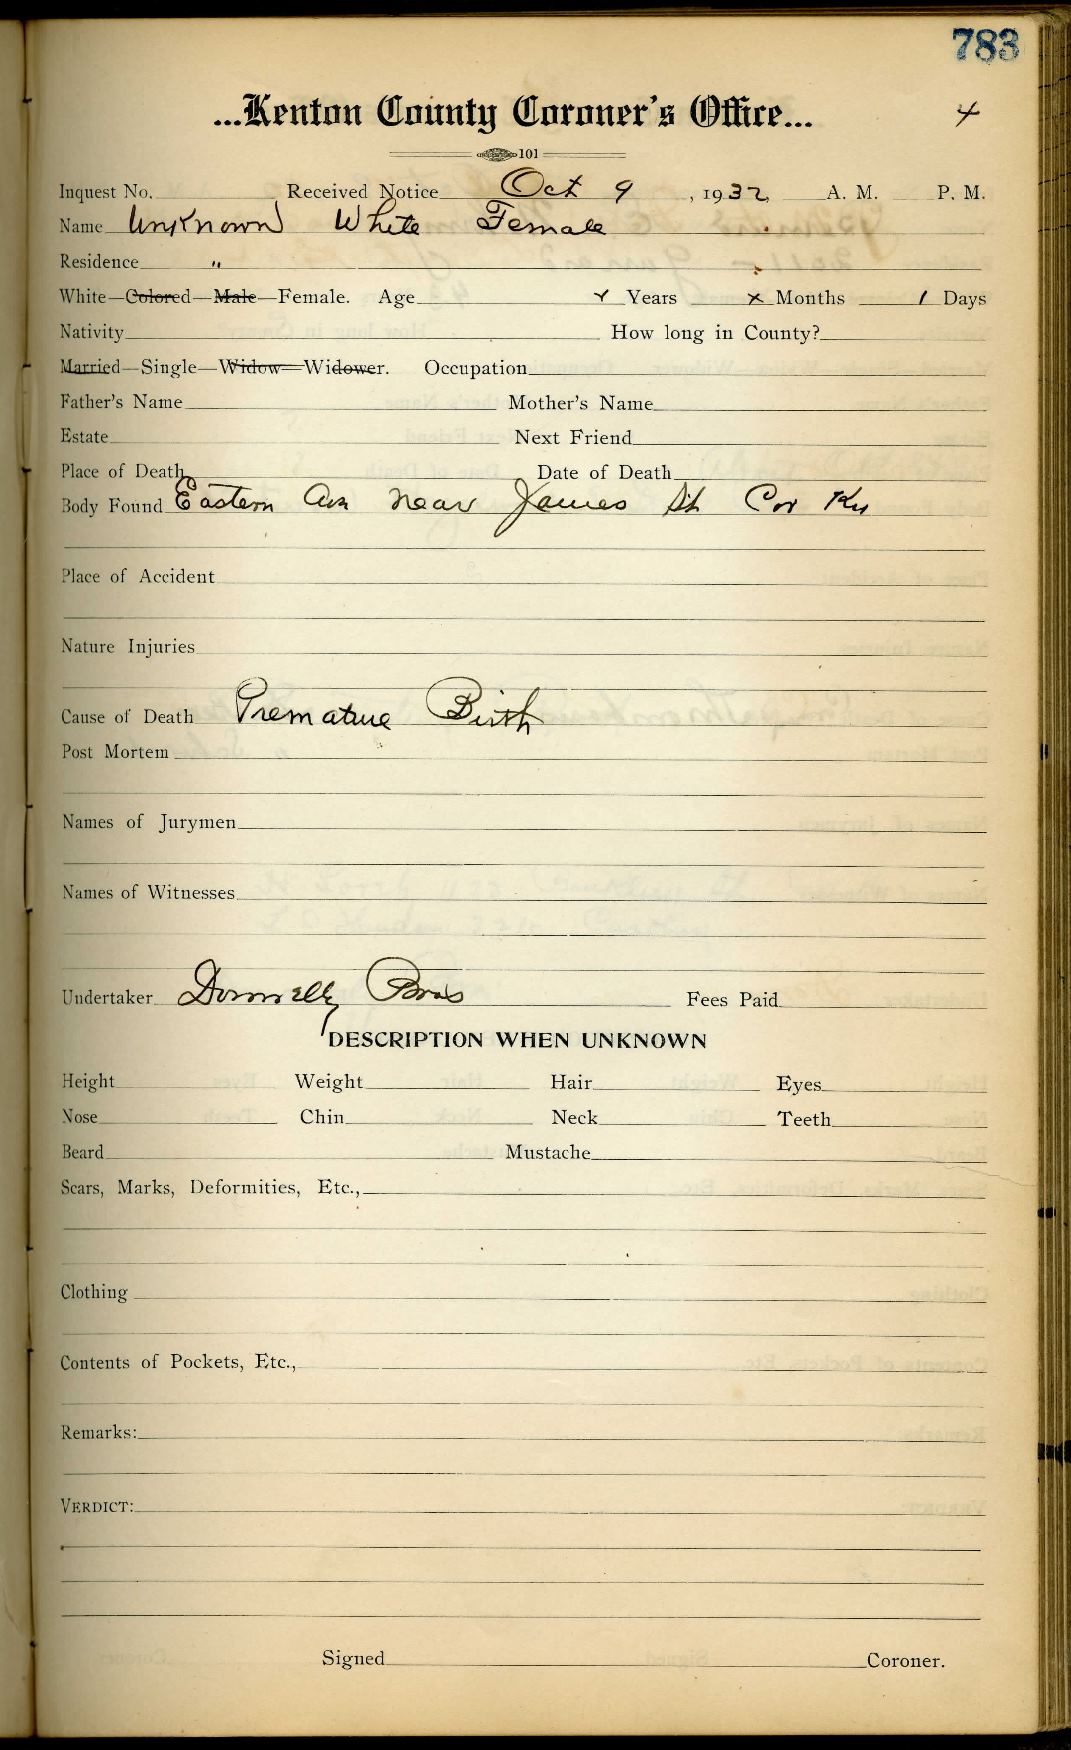 783
...Kenton County Coroner's Office... 4
101
Inquest No. Received Notice Oct 9, 1932, A. M. P. M.
Name Unknown White Female
Residence "
White—Colored—Male—Female. Age x Years x Months 1 Days
Nativity How long in County?
Married—Single—Widow—Widower. Occupation
Father's Name Mother's Name
Estate Next Friend
Place of Death Date of Death
Body Found Eastern Ave near James St Cov Ky
Place of Accident
Nature Injuries
Cause of Death Premature Birth
Post Mortem
Names of Jurymen
Names of Witnesses
Undertaker Donnelly Bros Fees Paid
DESCRIPTION WHEN UNKNOWN
Height Weight Hair Eyes
Nose Chin Neck Teeth
Beard Mustache
Scars, Marks, Deformities, Etc.,
Clothing
Contents of Pockets, Etc.,
Remarks:
VERDICT:
Signed Coroner.